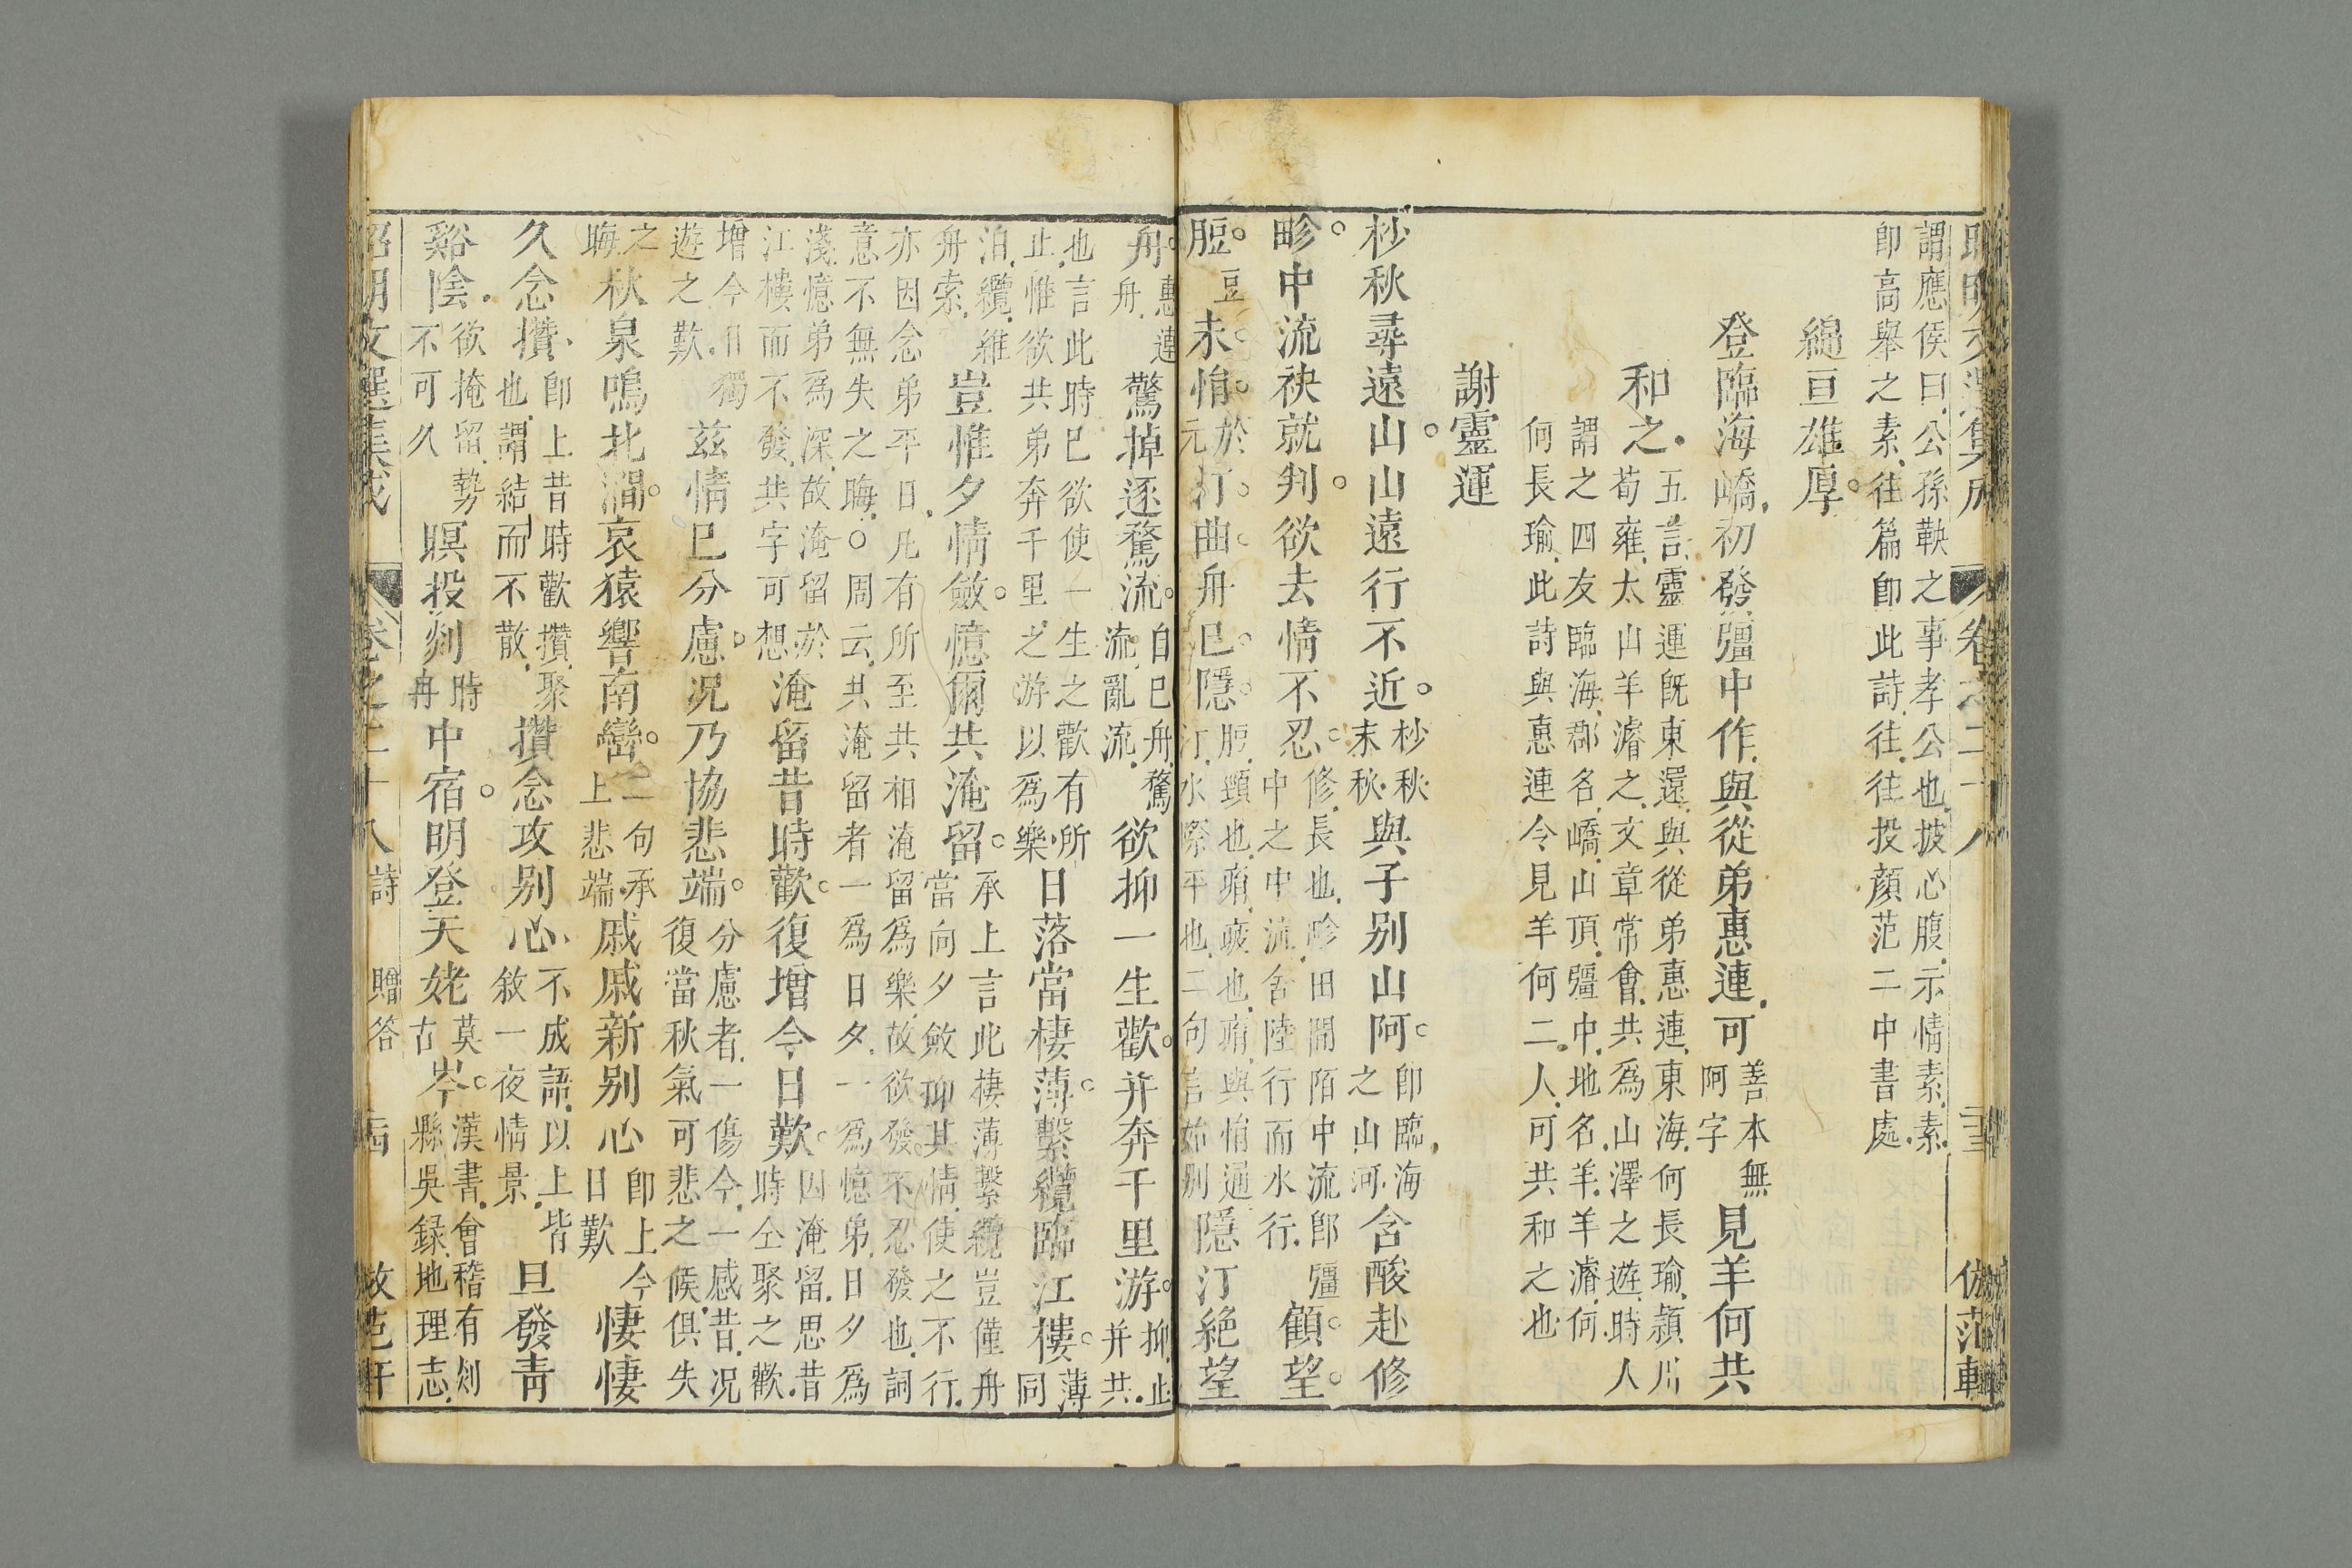 謂應侯曰公孫鞅之事孝公也披心腹示情素素
卽高舉之素往篇卽此詩往往投顏范二中書處
緜亘雄厚
登臨海嶠初發彊中作與從弟惠連可善本無阿字見羊何共
和之五言靈運旣東還與從弟惠連東海何長瑜潁川
荀雍太山羊濬之文章常會共爲山澤之遊時人
謂之四友臨海郡名嶠山頂彊中地名羊羊濬何
何長瑜此詩與惠連令見羊何二人可共和之也
謝靈運
杪秋尋遠山山遠行不近杪秋末秋與子别山阿卽臨海之山河含酸赴修
畛中流袂就判欲去情不忍修長也畛田間陌中流卽彊中之中流舍陸行而水行顧望
脰豆未悁於元汀曲舟巳隱脰頸也痟疲也痟與悁通汀水際平也二句言始别隱汀絶望
舟惠連舟驚棹逐驚流自巳舟驚流亂流欲抑一生歡并奔千里游抑止并共
也言此時巳欲使一生之歡有所
止惟欲共弟奔千里之游以爲樂日落當棲薄繫纜臨江樓薄同
泊纜維舟索豈惟夕情斂憶爾共淹留承上言此棲薄繫纜豈僅舟
當向夕斂抑其情使之不行
亦因念弟平日凡有所至共相淹留爲樂故欲發不忍發也詞
意不無失之晦○周云共淹留者一爲日夕一爲憶弟日夕爲
淺憶弟爲深故淹留於
江樓而不發共字可想淹留昔時歡復增今日歎因淹留思昔時仝聚之歡
增今日獨遊之歎茲情巳分慮况乃協悲端分慮者一傷今一感昔况
復當秋氣可悲之候俱失
之晦秋泉鳴北澗哀猿響南巒二句承上悲端戚戚新别心卽上今日歎悽悽
久念攢卽上昔時歡攢聚也謂結而不散攢念攻别心不成語以上皆敘一夜情景旦發青
谿陰欲掩留勢不可久暝投剡時冉中宿明登天姥莫古岑漢書會稽有剡縣吳録地理志
昭明文選集成　卷之二十八　詩　贈答